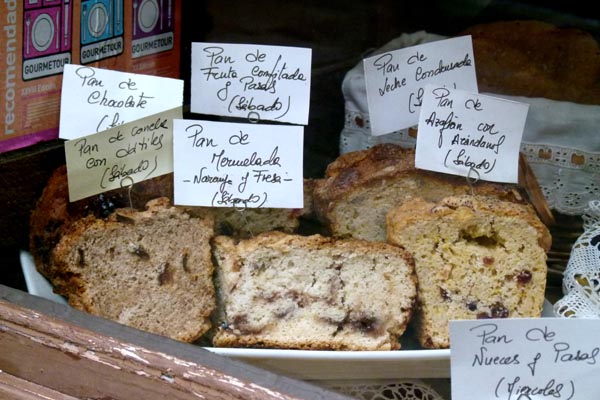 recomendado
GOURMETOUR
GOURMETOUR
GOURMETOUR
Pan de
Chocolate
Pan de
Fruta Confitada
y Pasas
(Sábado)
Pan de
Leche Condensada
Pan de canela
con dátiles
(Sábado)
Pan de
Mermelada
-Naranja y Fresa-
(Sábado)
Pan de
Azafrán con
Arándanos
(Sábado)
Pan de
Nueces y Pasas
(Miércoles)